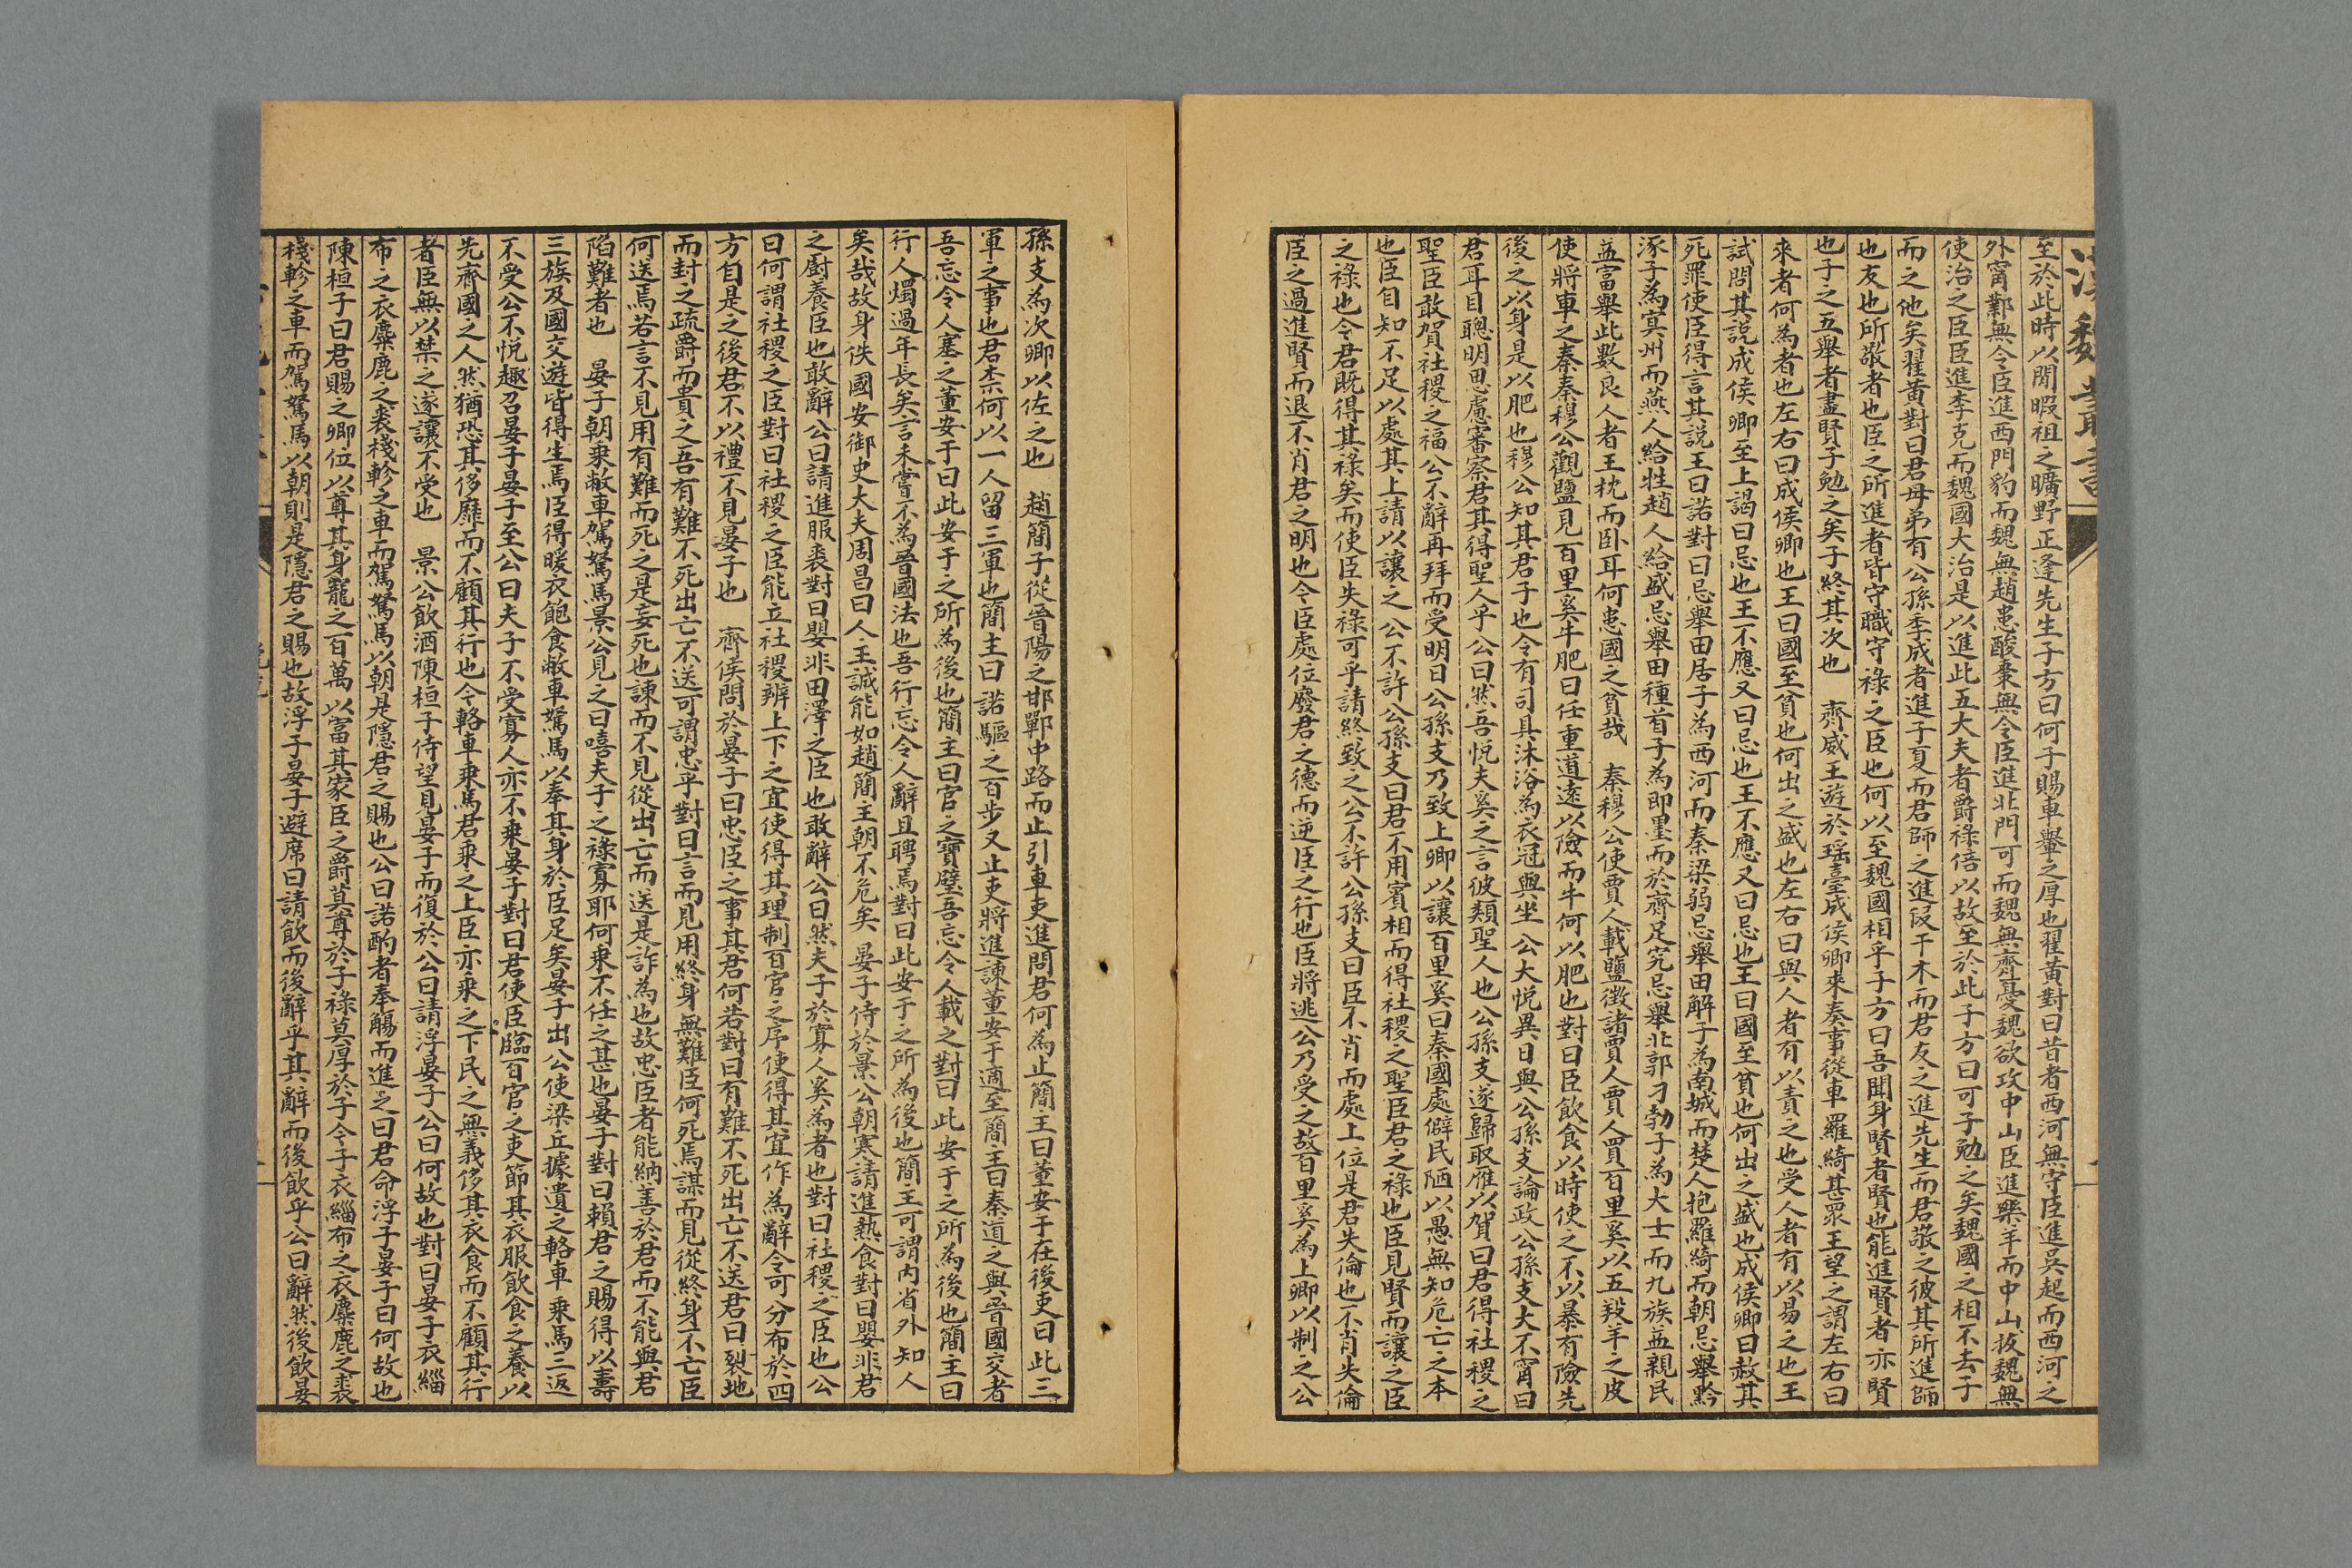 至於此時以閒暇祖之曠野正逢先生子方曰何子賜車轝之厚也翟黃對曰昔者西河無守臣進吳起而西河之
外甯鄴無令臣進西門豹而魏無趙患酸棗無令臣進北門可而魏無齊憂魏欲攻中山臣進樂羊而中山拔魏無
使治之臣臣進李克而魏國大治是以進此五大夫者爵祿倍以故至於此子方曰可子勉之矣魏國之相不去子
而之他矣翟黃對曰君母弟有公孫季成者進子夏而君師之進段干木而君友之進先生而君敬之彼其所進師
也友也所敬者也臣之所進者皆守職守祿之臣也何以至魏國相乎子方曰吾聞身賢者賢也能進賢者亦賢
也子之五舉者盡賢子勉之矣子終其次也　齊威王遊於瑤臺成侯卿來奏事從車羅綺甚眾王望之謂左右曰
來者何為者也左右曰成侯卿也王曰國至貧也何出之盛也左右曰與人者有以責之也受人者有以易之也王
試問其說成侯卿至上謁曰忌也王不應又曰忌也王不應又曰忌也王曰國至貧也何出之盛也成侯卿曰赦其
死罪使臣得言其說王曰諾對曰忌舉田居子為西河而秦梁弱忌舉田解子為南城而楚人抱羅綺而朝忌舉黔
涿子為寘州而燕人給牲趙人給盛忌舉田種首子為即墨而於齊足究忌舉北郭刁勃子為大士而九族益親民
益富舉此數良人者王枕而卧耳何患國之貧哉　秦穆公使賈人載鹽徵諸賈人賈人買百里奚以五羖羊之皮
使將車之秦秦穆公觀鹽見百里奚牛肥曰任重道遠以險而牛何以肥也對曰臣飲食以時使之不以暴有險先
後之以身是以肥也穆公知其君子也令有司具沐浴為衣冠與坐公大悅異日與公孫支論政公孫支大不甯曰
君耳目聰明思慮審察君其得聖人乎公曰然吾悅夫奚之言彼類聖人也公孫支遂歸取雁以賀曰君得社稷之
聖臣敢賀社稷之福公不辭再拜而受明日公孫支乃致上卿以讓百里奚曰秦國處僻民陋以愚無知危亡之本
也臣自知不足以處其上請以讓之公不許公孫支曰君不用賓相而得社稷之聖臣君之祿也臣見賢而讓之臣
之祿也今君既得其祿矣而使臣失祿可乎請終致之公不許公孫支曰臣不肖而處上位是君失倫也不肖失倫
臣之過進賢而退不肖君之明也今臣處位廢君之德而逆臣之行也臣將逃公乃受之故百里奚為上卿以制之公
孫支為次卿以佐之也　趙簡子從晉陽之邯鄲中路而止引車吏進問君何為止簡主曰董安于在後吏曰此三
軍之事也君柰何以一人留三軍也簡主曰諾驅之百步又止吏將進諫董安于適至簡主曰秦道之與晉國交者
吾忘令人塞之董安于曰此安于之所為後也簡主曰官之寶璧吾忘令人載之對曰此安于之所為後也簡主曰
行人燭過年長矣言未嘗不為晉國法也吾行忘令人辭且聘焉對曰此安于之所為後也簡主可謂內省外知人
矣哉故身佚國安御史大夫周昌曰人主誠能如趙簡主朝不危矣　晏子侍於景公朝寒請進熱食對曰嬰非君
之廚養臣也敢辭公曰請進服裘對曰嬰非田澤之臣也敢辭公曰然夫子於寡人奚為者也對曰社稷之臣也公
曰何謂社稷之臣對曰社稷之臣能立社稷辨上下之宜使得其理制百官之序使得其宜作為辭令可分布於四
方自是之後君不以禮不見晏子也　齊侯問於晏子曰忠臣之事其君何若對曰有難不死出亡不送君曰裂地
而封之疏爵而貴之吾有難不死出亡不送可謂忠乎對曰言而見用終身無難臣何死焉謀而見從終身不亡臣
何送焉若言不見用有難而死之是妄死也諫而不見從出亡而送是詐為也故忠臣者能納善於君而不能與君
陷難者也　晏子朝乘敝車駕駑馬景公見之曰嘻夫子之祿寡耶何乘不任之甚也晏子對曰賴君之賜得以壽
三族及國交遊皆得生焉臣得暖衣飽食敝車駑馬以奉其身於臣足矣晏子出公使梁丘據遺之輅車乘馬三返
不受公不悅趣召晏子晏子至公曰夫子不受寡人亦不乘晏子對曰君使臣臨百官之吏節其衣服飲食之養以
先齊國之人然猶恐其侈靡而不顧其行也今輅車乘馬君乘之上臣亦乘之下民之無義侈其衣食而不顧其行
者臣無以禁之遂讓不受也　景公飲酒陳桓子侍望見晏子而復於公曰請浮晏子公曰何故也對曰晏子衣緇
布之衣麋鹿之裘棧軫之車而駕駑馬以朝是隱君之賜也公曰諾酌者奉觴而進之曰君命浮子晏子曰何故也
陳桓子曰君賜之卿位以尊其身寵之百萬以富其家臣之爵莫尊於子祿莫厚於子今子衣緇布之衣麋鹿之裘
棧軫之車而駕駑馬以朝則是隱君之賜也故浮子晏子避席曰請飲而後辭乎其辭而後飲乎公曰辭然後飲晏